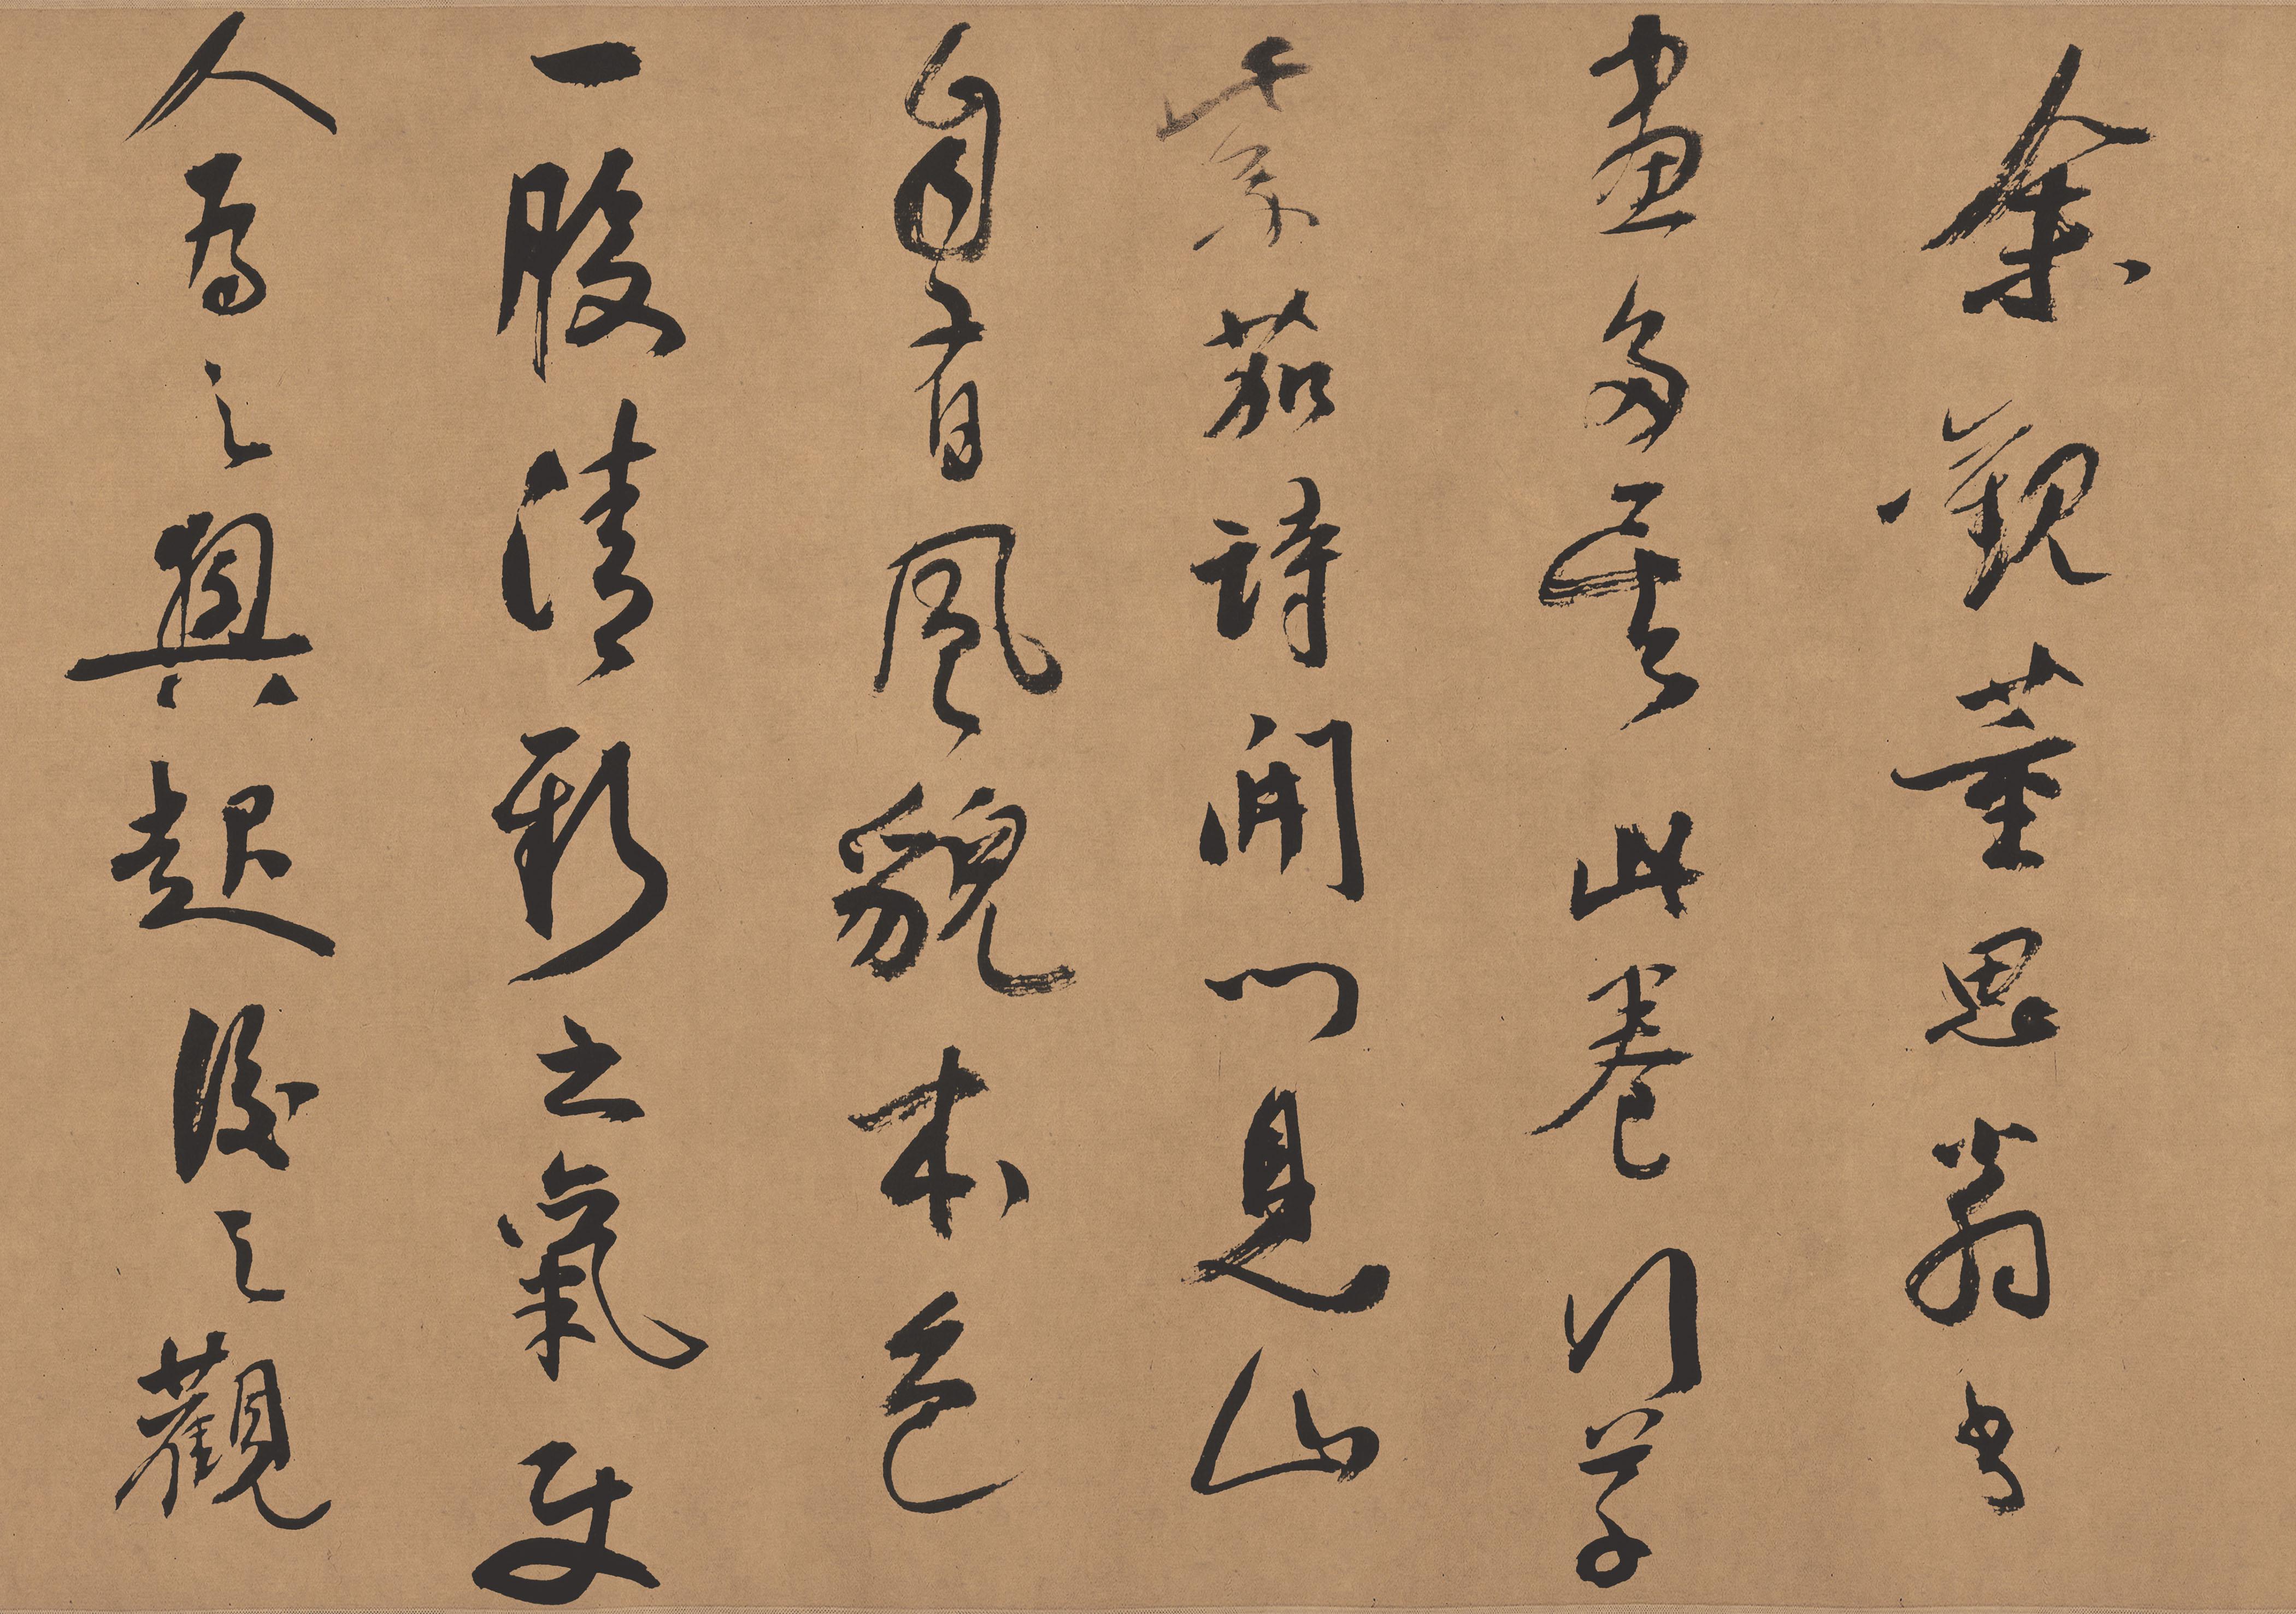 余觀董思翁書
畫多矣此卷行草
紫茄詩開門見山
自有風貌本色
一股清新之氣使
人為之興起後之觀